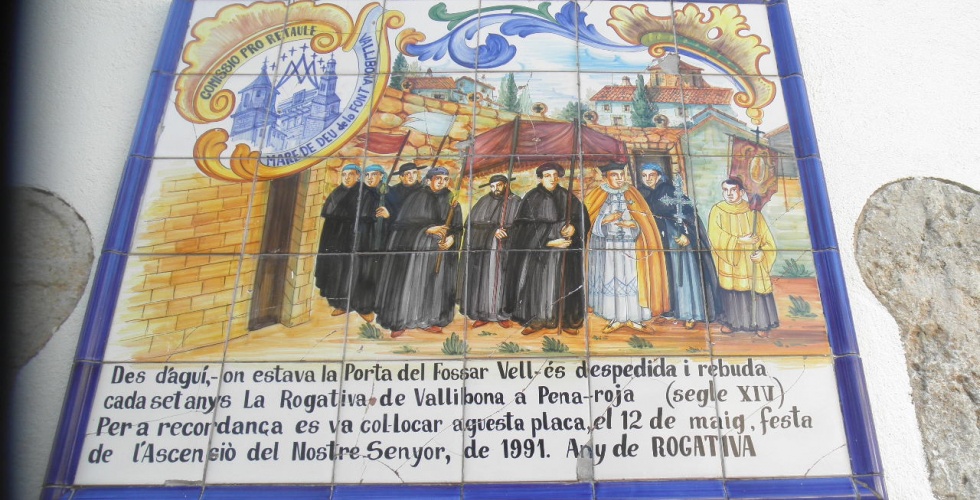 COMISSIO PRO RETAULE
MARE DE DEU de la FONT VALLIBONA
Des d'aguí,-on estava la Porta del Fossar Vell-és despedida i rebuda
cada set anys La Rogativa de Vallibona a Pena-roja (segle XIV)
Per a recordança es va col·locar aguesta placa, el 12 de maig, festa
de l'Ascensiò del Nostre Senyor, de 1991. Any de ROGATIVA